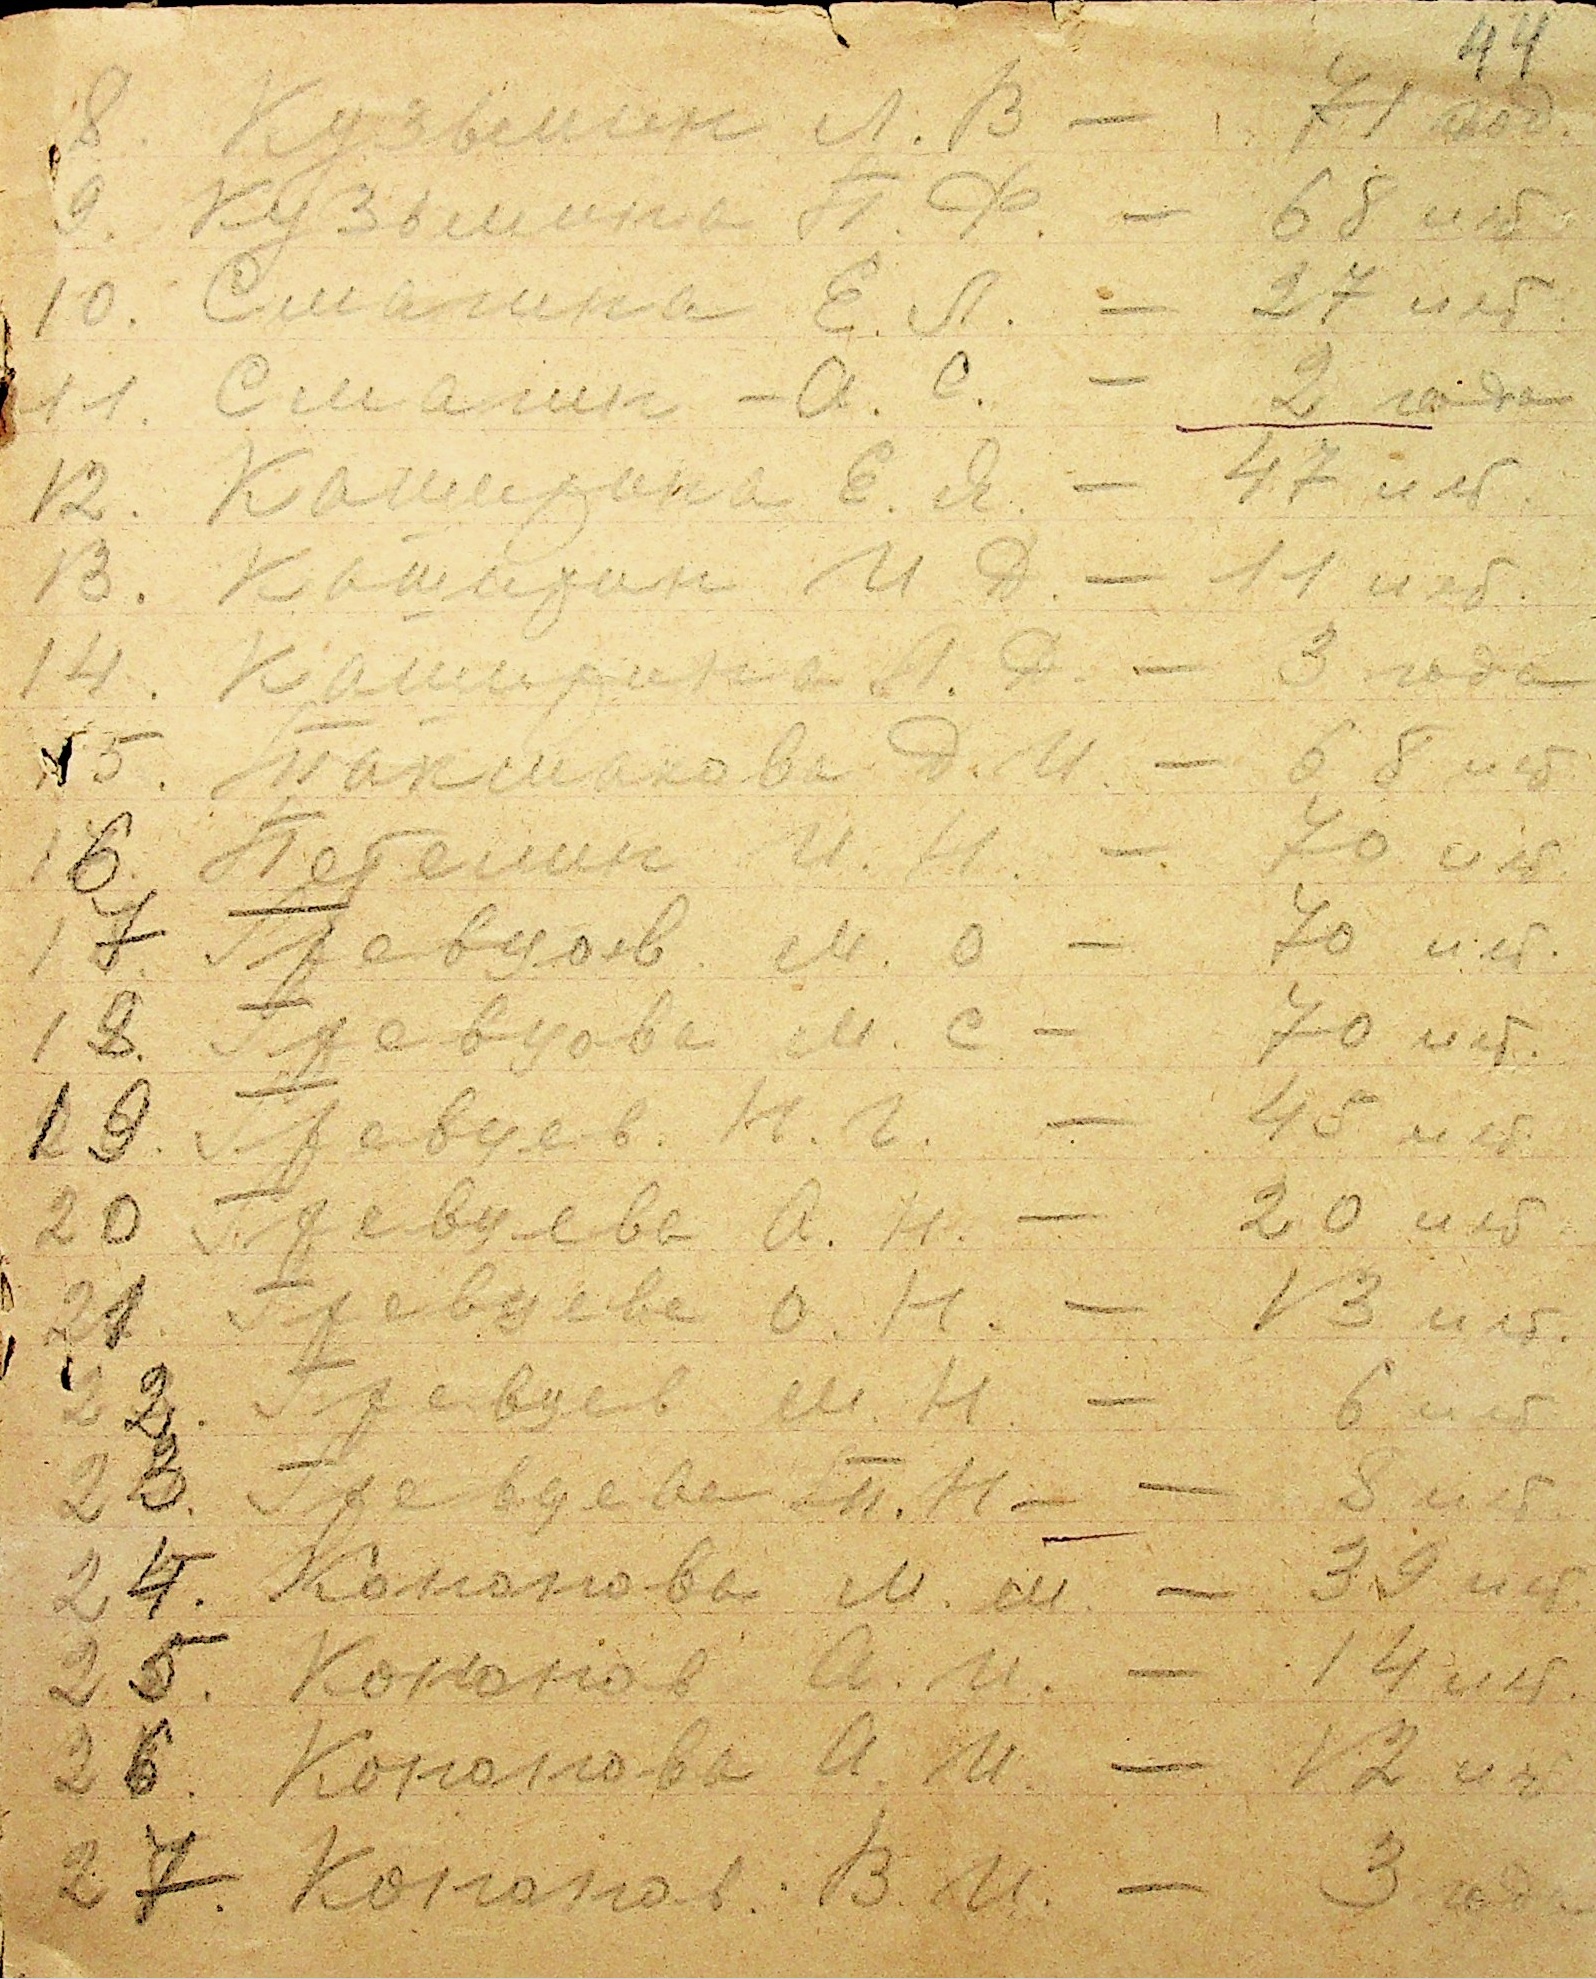 44
8. Кузьмин Л. В — 71 год.
9. Кузьмина П. Ф. — 68 лет
10. Смагина Е. Л. — 27 лет.
11. Смагин – А. С. — 2 года
12. Каширина Е. Я. — 47 лет.
13. Каширин И Д. — 11 лет.
14. Каширина Л. Д. — 3 года
15. Д. И. — 68 лет
16. Петелин И. Н. — 70 лет.
17. Гревцов. М. О — 70 лет.
18. Гревцова М. С — 70 лет.
19. Гревцев. Н. Г. — 45 лет.
20 Гревцева А. Н. — 20 лет
21. Гревцева О. Н. — 13 лет.
22. Гревцев М. Н. — 6 лет
23. Гревцева П. Н — 8 лет.
24. Кононова М. М. — 39 лет.
25. Кононов А. И. — 14 лет.
26. Кононова А. И. — 12 лет
27. Кононов. В. И. — 3 года